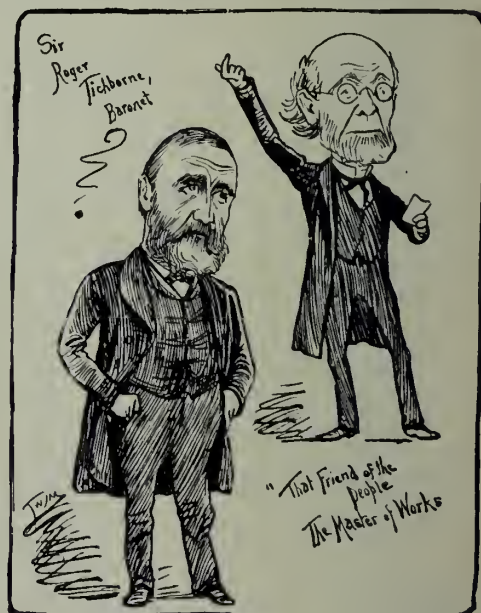 Sir
Roger
Tichborne,
Baronet
"That Friend of the
people
The Master of Works